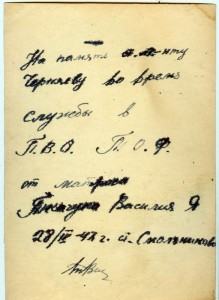 На память л-нту
Черняеву во время
службы в
П.В.О. П.О.Ф.
от матроса
Василия Я
28/III 42 г. п.